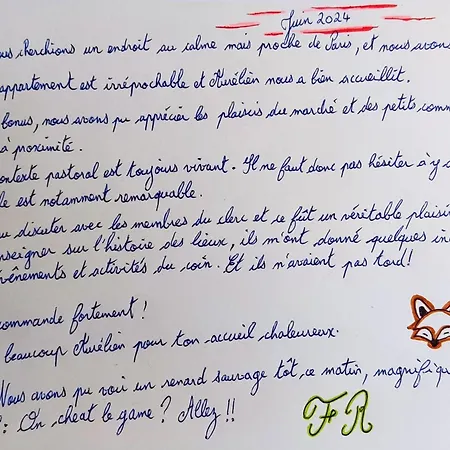 Juin 2024
ous cherchions un endroit au calme mais proche de Paris, et nous avons
appartement est irréprochable et Aurélien nous a bien accueillit.
bonus, nous avons pu apprécier les plaisirs du marché et des petits comm
à proximité.
contexte pastoral est toujours vivant. Il ne faut donc pas hésiter à y a
le est notamment remarquable.
u dixuter avec les membres du clerc et ce fût un véritable plaisir
enseigner sur l'histoire des lieux, ils m'ont donné quelques in
évènements et activités du coin. Et ils n'avaient pas tord!
commande fortement!
beaucoup Aurélien pour ton accueil chaleureux.
Nous avons pu voir un renard sauvage tôt ce matin, magnifiqu
: On cheat le game? Allez!!
FR